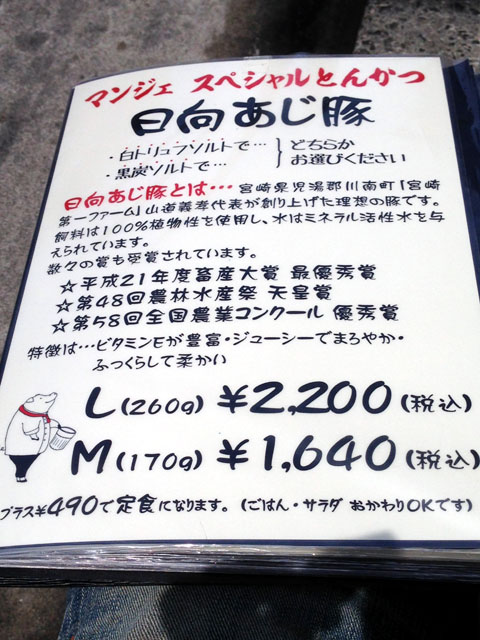 マンジェ スペシャルとんかつ
日向あじ豚
・白トリュフソルトで… どちらか
・黒炭ソルトで… お選びください
日向あじ豚とは… 宮崎県児湯郡川南町「宮崎
第一ファーム」山道義孝代表が創り上げた理想の豚です。
飼料は100%植物性を使用し、水はミネラル活性水を与
えられています。
数々の賞も受賞されています。
☆平成21年度畜産大賞 最優秀賞
☆第48回農林水産祭 天皇賞
☆第58回全国農業コンクール 優秀賞
特徴は…ビタミンEが豊富・ジューシーでまろやか・
ふっくらして柔かい
L(260g) ¥2,200(税込)
M(170g) ¥1,640(税込)
プラス¥490で定食になります。(ごはん・サラダ おかわりOKです)